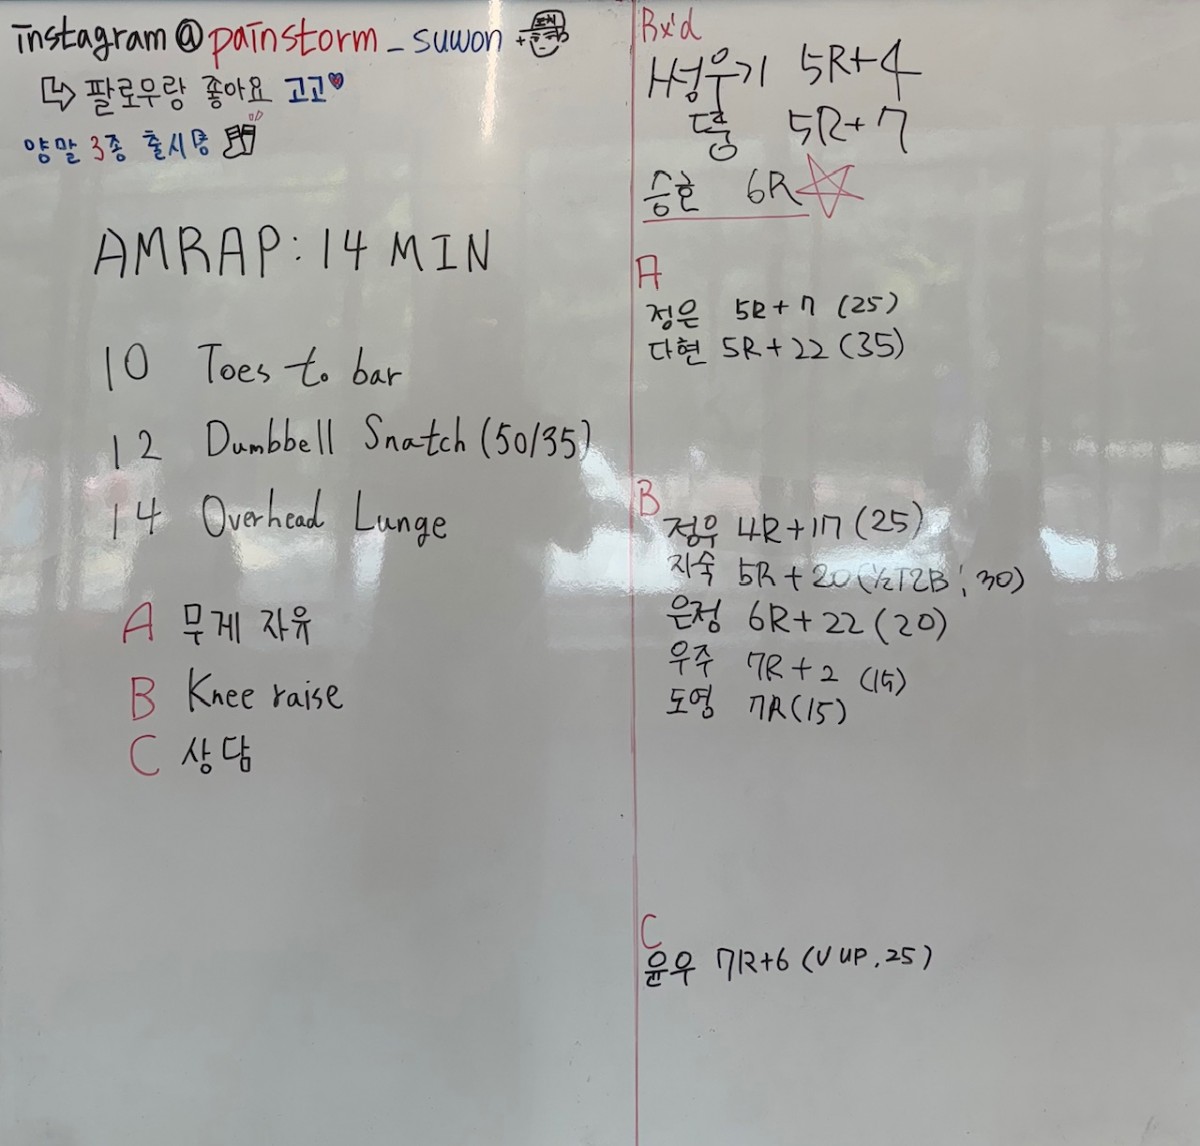 instagram@painstorm_suwon +
↳ 팔로우랑 좋아요 고고♥
양말 3종 출시중
AMRAP: 14 MIN
10 Toes to bar
12 Dumbbell Snatch (50/35)
14 Overhead Lunge
A 무게 자유
B Knee raise
C 상담
Rx'd
5R+4
5R+7
승호 6R☆
A
정은 5R+7 (25)
다현 5R+22 (35)
B
정우 4R+17 (25)
지숙 5R+20 (½T2B, 30)
은정 6R+22 (20)
우주 7R+2 (15)
도영 7R (15)
C
윤우 7R+6 (V UP, 25)